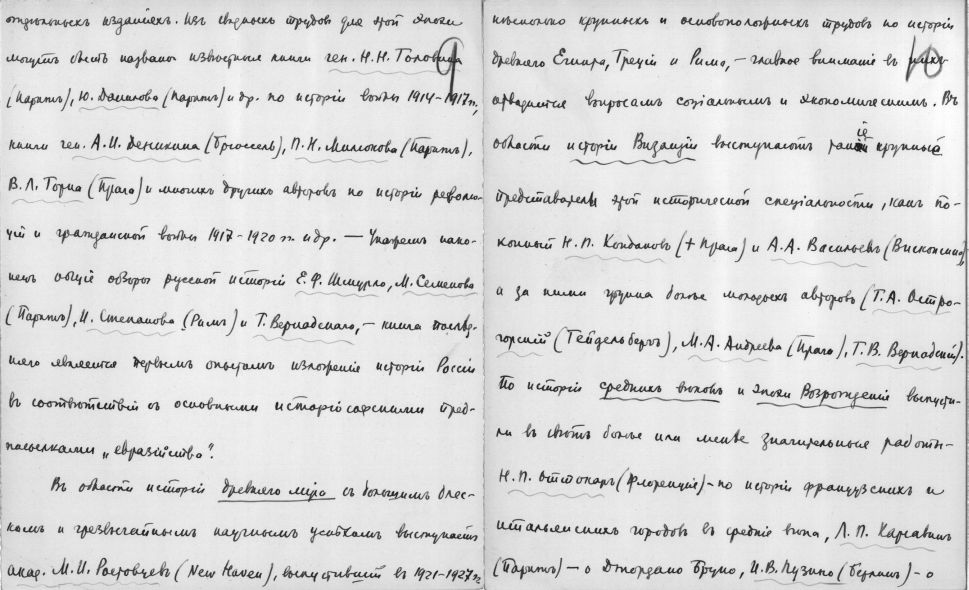 отдельныхъ изданіяхъ. Изъ сводныхъ трудовъ для этой эпохи
могутъ быть названы извѣстныя книги ген. Н.Н. Головина
9
(Парижъ), Ю. Данилова (Парижъ) и др. по исторіи войны 1914-1917 гг.,
книги ген. А.И. Деникина (Брюссель), П.Н. Милюкова (Парижъ),
В.Л. Горна (Прага) и многихъ другихъ авторовъ по исторіи револю-
ціи и гражданской войны 1917-1920 гг. и др. — Укажемъ нако-
нецъ общіе обзоры русской исторіи Е.Ф. Шмурло, М. Семенова
(Парижъ), И. Степанова (Римъ) и Г. Вернадскаго, – книга послѣд-
няго является первымъ опытомъ изложенія исторіи Россіи
въ соотвѣтствіи съ основными исторіософскими пред-
посылками „евразійства“.
Въ области исторіи древняго міра съ большимъ блес-
комъ и чрезвычайнымъ научнымъ успѣхомъ выступаетъ
акад. М.И. Ростовцевъ (New Haven), выпустившій въ 1921-1927 гг.
нѣсколько крупныхъ и основоположныхъ трудовъ по исторіи
древняго Египта, Греціи и Рима, – главное вниманіе въ нихъ
10
отводится вопросамъ соціальнымъ и экономическимъ. Въ
области исторіи Византіи выступаютъ такіе крупные
представители этой исторической спеціальности, какъ по-
койный Н.П. Кондаковъ (+ Прага) и А.А. Васильевъ (Висконсинъ),
и за ними группа болѣе молодыхъ авторовъ (Г.А. Остро-
горскій (Гейдельбергъ), М.А. Андреева (Прага), Г.В. Вернадскій).
По исторіи среднихъ вѣковъ и эпохи Возрожденія выпусти-
ли въ свѣтъ болѣе или менѣе значительныя работы –
Н.П. Оттокаръ (Флоренція) – по исторіи французскихъ и
итальянскихъ городовъ въ средніе вѣка, Л.П. Карсавинъ
(Парижъ) – о Джордано Бруно, И.В. Пузино (Берлинъ) – о